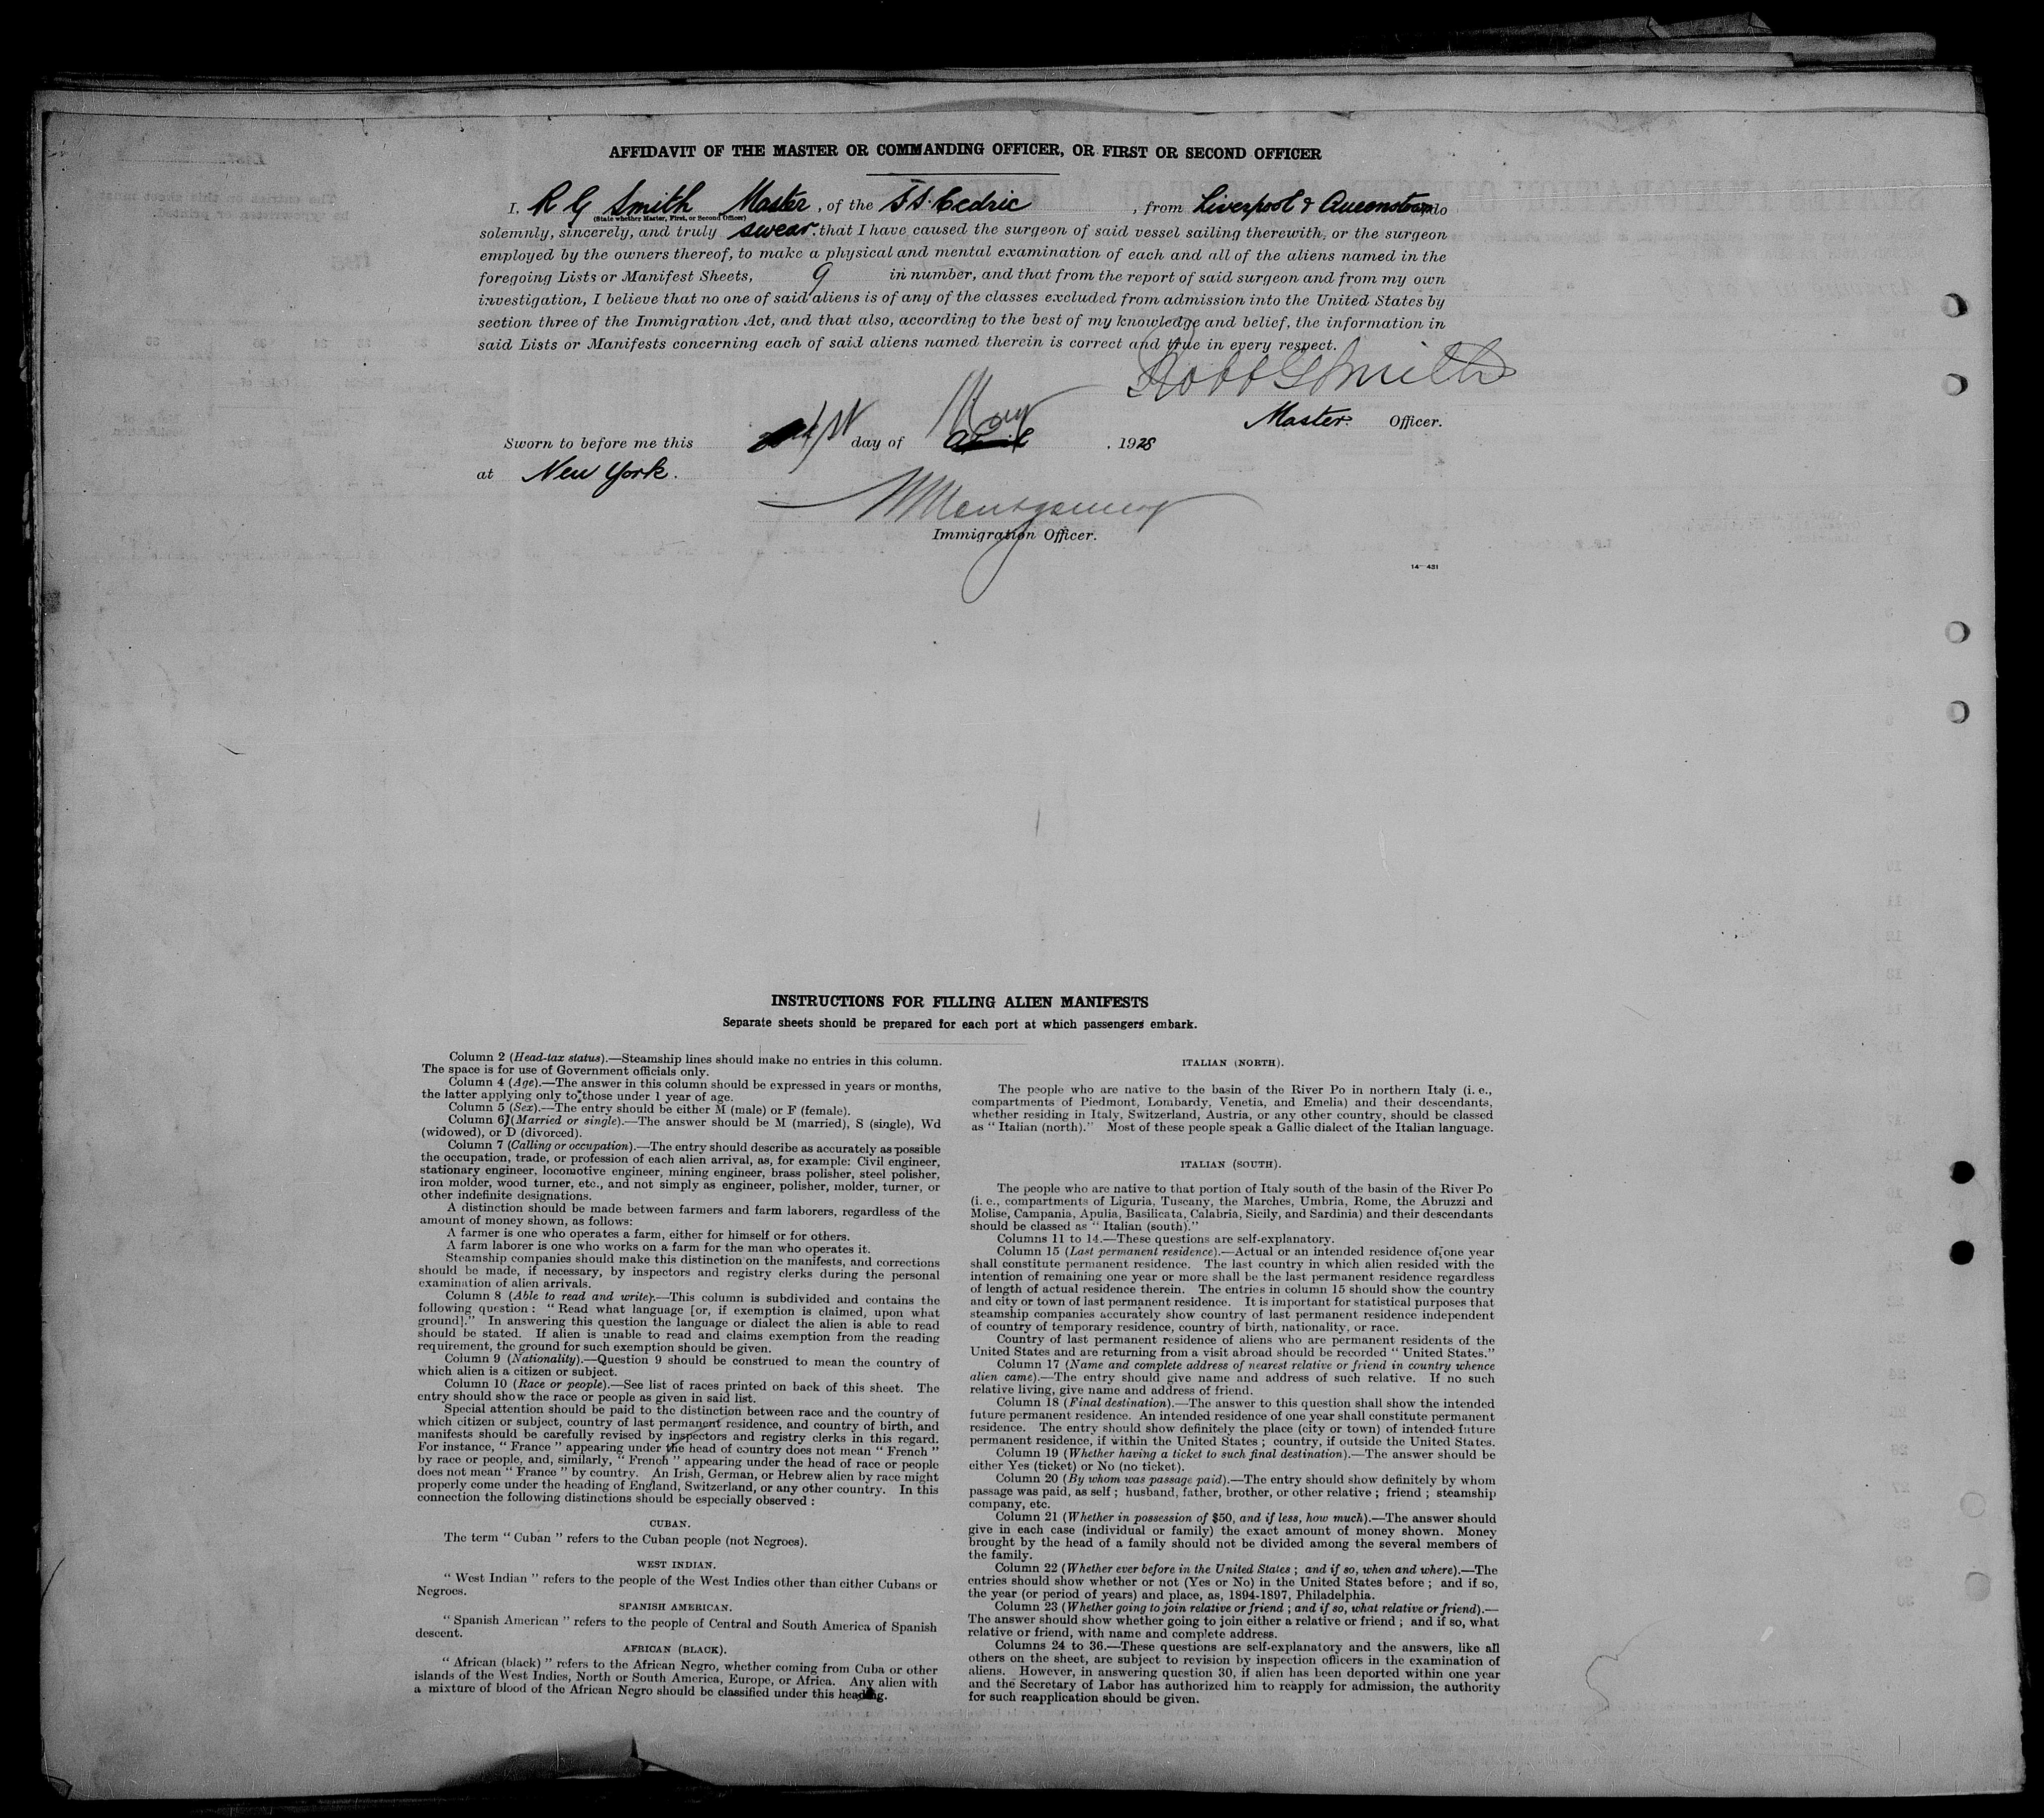 AFFIDAVIT OF THE MASTER OR COMMANDING OFFICER, OR FIRST OR SECOND OFFICER
I, R G Smith Master, of the S.S. Cedric, from Liverpool & Queenstown do
(State whether Master, First, or Second Officer)
solemnly, sincerely, and truly swear. that I have caused the surgeon of said vessel sailing therewith, or the surgeon
employed by the owners thereof, to make a physical and mental examination of each and all of the aliens named in the
foregoing Lists or Manifest Sheets, 9 in number, and that from the report of said surgeon and from my own
investigation, I believe that no one of said aliens is of any of the classes excluded from admission into the United States by
section three of the Immigration Act, and that also, according to the best of my knowledge and belief, the information in
said Lists or Manifests concerning each of said aliens named therein is correct and true in every respect.
Robt G Smith
Master. Officer.
Sworn to before me this 1st day of May April, 1928
at New York.
Montgomery
Immigration Officer.
14—431
INSTRUCTIONS FOR FILLING ALIEN MANIFESTS
Separate sheets should be prepared for each port at which passengers embark.
Column 2 (Head-tax status).—Steamship lines should make no entries in this column.
The space is for use of Government officials only.
Column 4 (Age).—The answer in this column should be expressed in years or months,
the latter applying only to those under 1 year of age.
Column 5 (Sex).—The entry should be either M (male) or F (female).
Column 6 (Married or single).—The answer should be M (married), S (single), Wd
(widowed), or D (divorced).
Column 7 (Calling or occupation).—The entry should describe as accurately as possible
the occupation, trade, or profession of each alien arrival, as, for example: Civil engineer,
stationary engineer, locomotive engineer, mining engineer, brass polisher, steel polisher,
iron molder, wood turner, etc., and not simply as engineer, polisher, molder, turner, or
other indefinite designations.
A distinction should be made between farmers and farm laborers, regardless of the
amount of money shown, as follows:
A farmer is one who operates a farm, either for himself or for others.
A farm laborer is one who works on a farm for the man who operates it.
Steamship companies should make this distinction on the manifests, and corrections
should be made, if necessary, by inspectors and registry clerks during the personal
examination of alien arrivals.
Column 8 (Able to read and write).—This column is subdivided and contains the
following question: "Read what language [or, if exemption is claimed, upon what
ground]." In answering this question the language or dialect the alien is able to read
should be stated. If alien is unable to read and claims exemption from the reading
requirement, the ground for such exemption should be given.
Column 9 (Nationality).—Question 9 should be construed to mean the country of
which alien is a citizen or subject.
Column 10 (Race or people).—See list of races printed on back of this sheet. The
entry should show the race or people as given in said list.
Special attention should be paid to the distinction between race and the country of
which citizen or subject, country of last permanent residence, and country of birth, and
manifests should be carefully revised by inspectors and registry clerks in this regard.
For instance, "France" appearing under the head of country does not mean "French"
by race or people, and, similarly, "French" appearing under the head of race or people
does not mean "France" by country. An Irish, German, or Hebrew alien by race might
properly come under the heading of England, Switzerland, or any other country. In this
connection the following distinctions should be especially observed:
CUBAN.
The term "Cuban" refers to the Cuban people (not Negroes).
WEST INDIAN.
"West Indian" refers to the people of the West Indies other than either Cubans or
Negroes.
SPANISH AMERICAN.
"Spanish American" refers to the people of Central and South America of Spanish
descent.
AFRICAN (BLACK).
"African (black)" refers to the African Negro, whether coming from Cuba or other
islands of the West Indies, North or South America, Europe, or Africa. Any alien with
a mixture of blood of the African Negro should be classified under this heading.
ITALIAN (NORTH).
The people who are native to the basin of the River Po in northern Italy (i. e.,
compartments of Piedmont, Lombardy, Venetia, and Emelia) and their descendants,
whether residing in Italy, Switzerland, Austria, or any other country, should be classed
as "Italian (north)." Most of these people speak a Gallic dialect of the Italian language.
ITALIAN (SOUTH).
The people who are native to that portion of Italy south of the basin of the River Po
(i. e., compartments of Liguria, Tuscany, the Marches, Umbria, Rome, the Abruzzi and
Molise, Campania, Apulia, Basilicata, Calabria, Sicily, and Sardinia) and their descendants
should be classed as "Italian (south)."
Columns 11 to 14.—These questions are self-explanatory.
Column 15 (Last permanent residence).—Actual or an intended residence of one year
shall constitute permanent residence. The last country in which alien resided with the
intention of remaining one year or more shall be the last permanent residence regardless
of length of actual residence therein. The entries in column 15 should show the country
and city or town of last permanent residence. It is important for statistical purposes that
steamship companies accurately show country of last permanent residence independent
of country of temporary residence, country of birth, nationality, or race.
Country of last permanent residence of aliens who are permanent residents of the
United States and are returning from a visit abroad should be recorded "United States."
Column 17 (Name and complete address of nearest relative or friend in country whence
alien came).—The entry should give name and address of such relative. If no such
relative living, give name and address of friend.
Column 18 (Final destination).—The answer to this question shall show the intended
future permanent residence. An intended residence of one year shall constitute permanent
residence. The entry should show definitely the place (city or town) of intended future
permanent residence, if within the United States; country, if outside the United States.
Column 19 (Whether having a ticket to such final destination).—The answer should be
either Yes (ticket) or No (no ticket).
Column 20 (By whom was passage paid).—The entry should show definitely by whom
passage was paid, as self; husband, father, brother, or other relative; friend; steamship
company, etc.
Column 21 (Whether in possession of $50, and if less, how much).—The answer should
give in each case (individual or family) the exact amount of money shown. Money
brought by the head of a family should not be divided among the several members of
the family.
Column 22 (Whether ever before in the United States; and if so, when and where).—The
entries should show whether or not (Yes or No) in the United States before; and if so,
the year (or period of years) and place, as, 1894-1897, Philadelphia.
Column 23 (Whether going to join relative or friend; and if so, what relative or friend).—
The answer should show whether going to join either a relative or friend; and if so, what
relative or friend, with name and complete address.
Columns 24 to 36.—These questions are self-explanatory and the answers, like all
others on the sheet, are subject to revision by inspection officers in the examination of
aliens. However, in answering question 30, if alien has been deported within one year
and the Secretary of Labor has authorized him to reapply for admission, the authority
for such reapplication should be given.